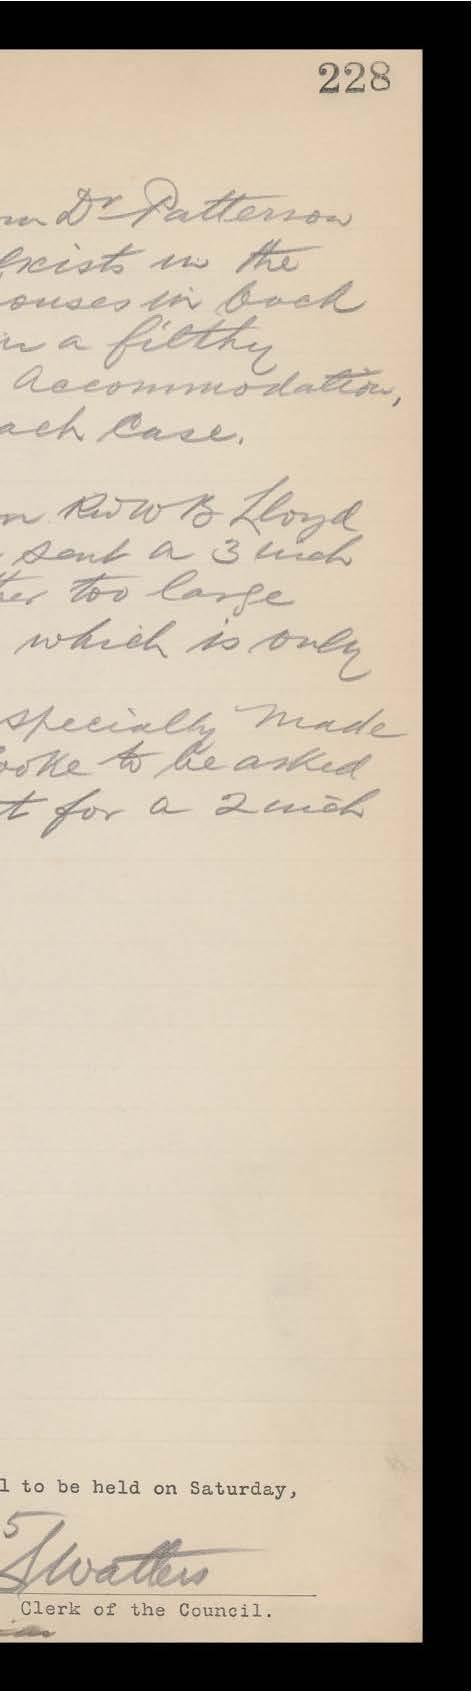 228
Dr Patterson
exists in the
ouses in back
in a filthy
Accommodation,
ach Case.
R W B Lloyd
sent a 3 inch
her too large
which is only
specially made
ooke to be asked
t for a 2 inch
l to be held on Saturday,
5
Watters
Clerk of the Council.